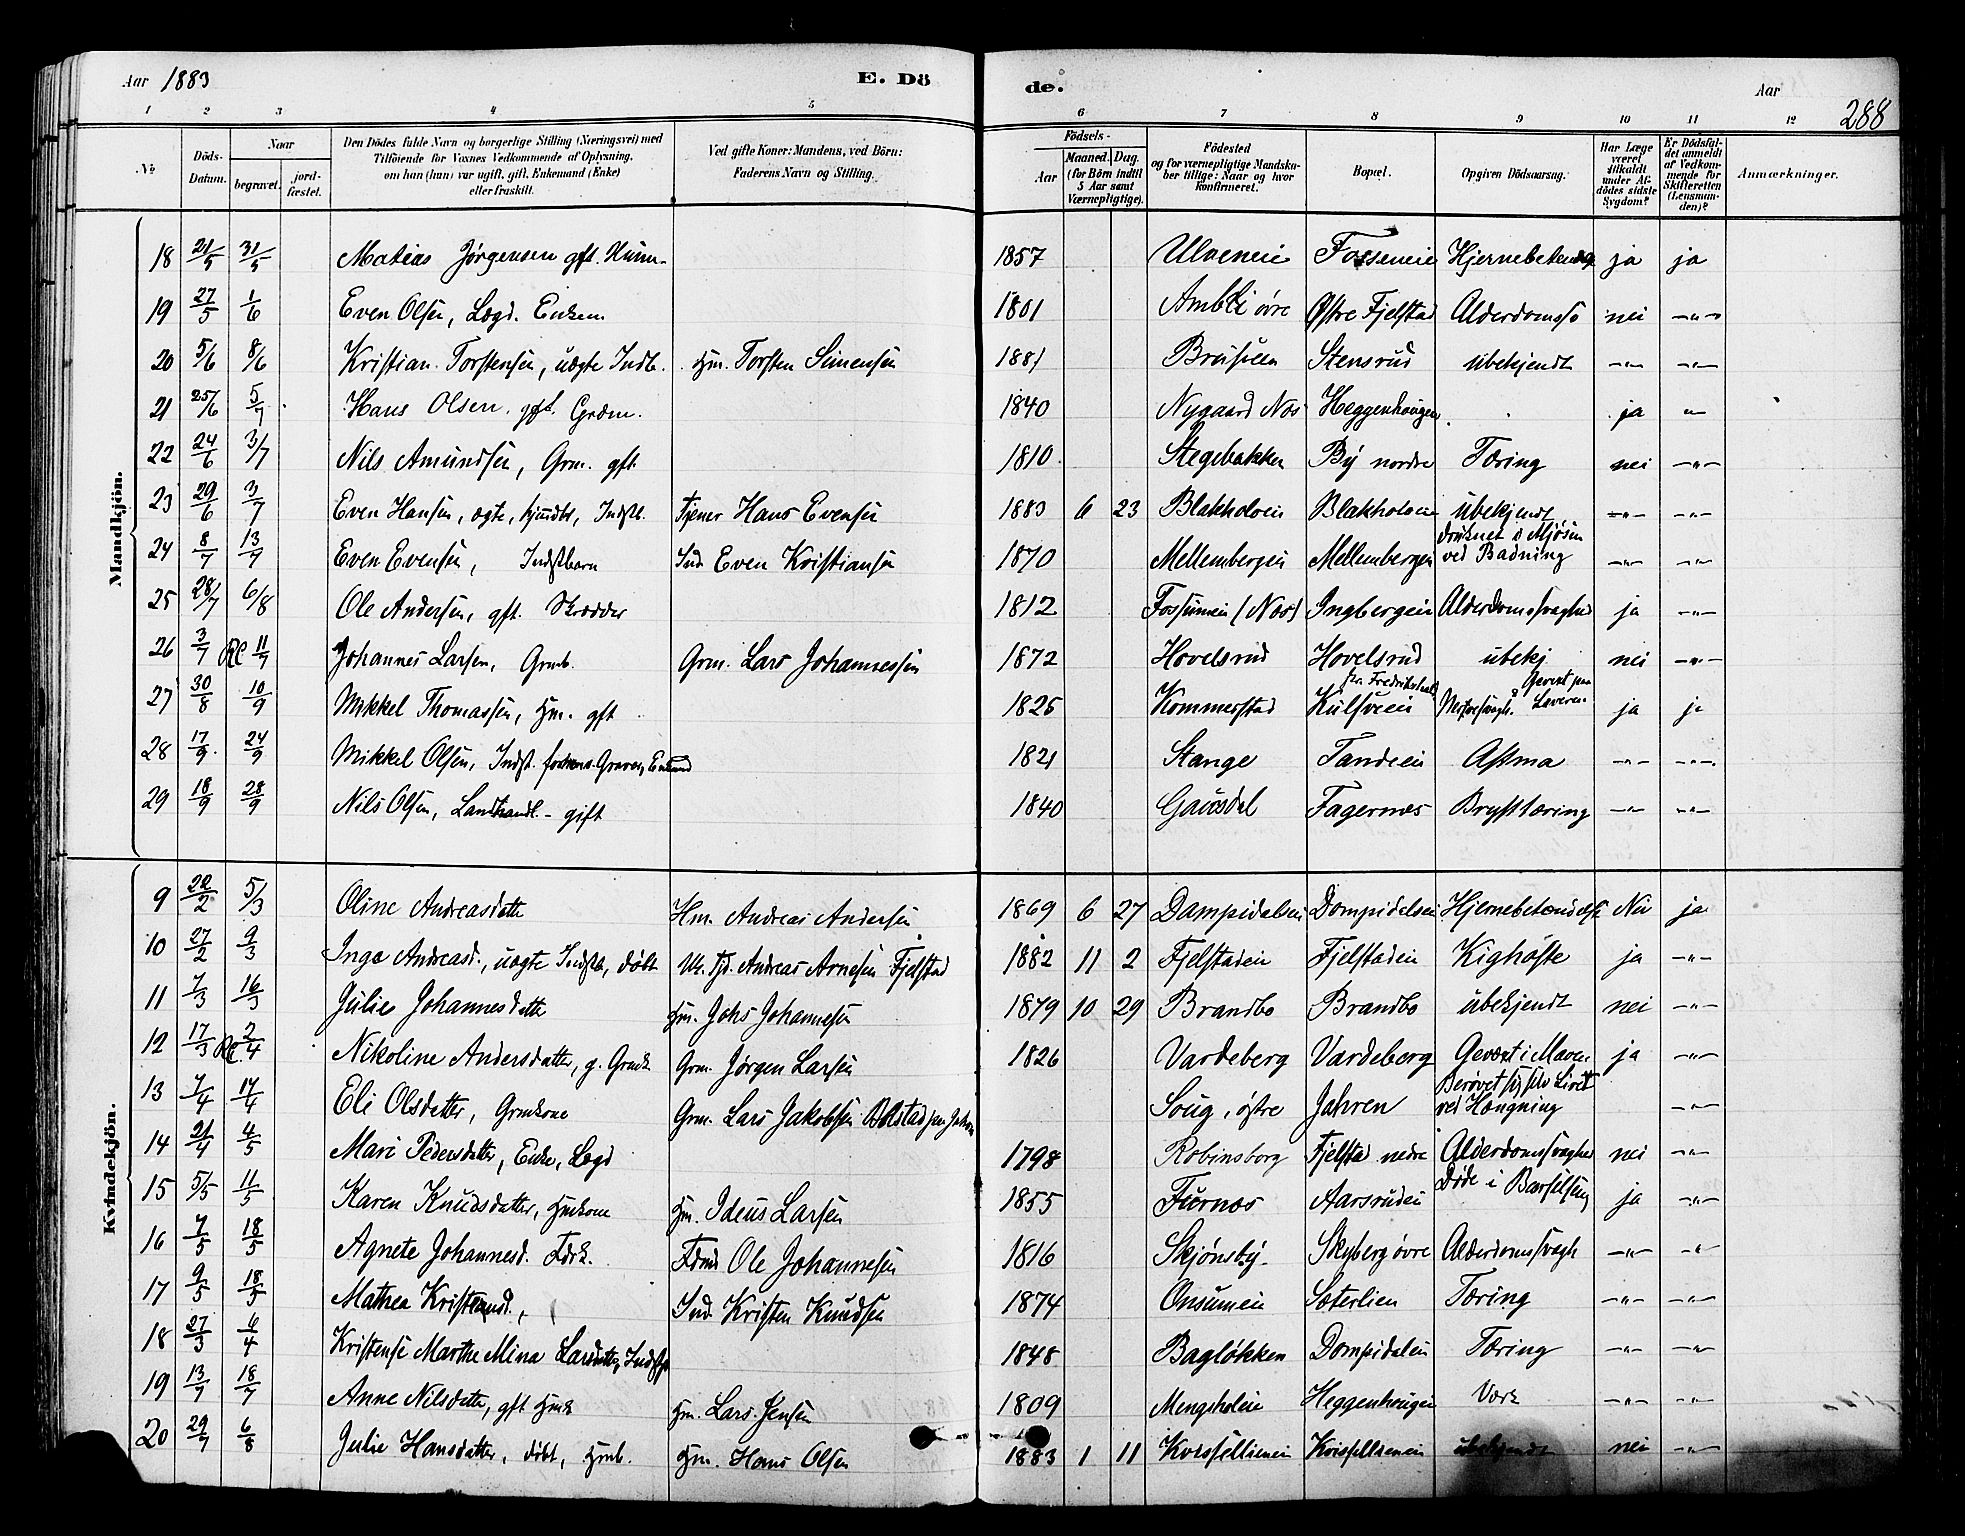 Aar 1883 E. Dö de. Aar 288
1 2 3 4 5 6 7 8 9 10 11 12
No. Döds-Datum. Naar begravet. jordfæstet. Den Dödes fulde Navn og borgerlige Stilling (Næringsvei) med Tilföiende for Voxnes Vedkommende af Oplysning, om han (hun) var ugift, gift, Enkemand (Enke) eller fraskilt. Ved gifte Koner: Mandens, ved Börn: Faderens Navn og Stilling. Födsels- Aar Maaned. Dag. (for Börn indtil 5 Aar samt Værnepligtige). Födested og for værnepligtige Mandskaber tillige: Naar og hvor konfirmeret. Bopæl. Opgiven Dödsaarsag. Har Læge været tilkaldt under Afdödes sidste Sygdom? Er Dödsfaldet anmeldt af Vedkommende for Skifteretten (Lensmanden)? Anmærkninger.
Mandkjön.
18 21/5 31/5 Matias Jørgensen gft. Husm. 1857 Ulveneie Fosseneie ja ja
19 27/5 1/6 Even Olsen, Lægd. Enkem 1801 Ambli øvre Østre Fjelstad Alderdomss nei -"-
20 5/6 8/6 Kristian Torstensen, uægte Indb. Hm. Torsten Simensen 1881 Stensrud ubekjendt -"- -"-
21 25/6 5/7 Hans Olsen, gft. Grdm. 1840 Nygaard Næs Heggenhougen ja "
22 24/6 3/7 Nils Amundsen, Grm. gft 1810 Stegebakken By nordre Tæring nei -"-
23 29/6 3/7 Even Hansen, ægte, hjmdbt, Indstb. Tjener Hans Evensen 1883 6 23 Blakholveie Blakholveie ubekjendt -"- -"-
24 8/7 13/7 Even Evensen, Indstbarn Ind Even Kristiansen 1870 Mellembergen Mellembergen druknet i Mjøsen ved Badning -"- -"-
25 28/7 6/8 Ole Andersen, gft. Skrædder 1812 Fossumeie (Næs) Ingbergeie Alderdomssvaghed ja -"-
26 3/7 Re 11/7 Johannes Larsen, Grmb. Grm. Lars Johannessen 1872 Hovelsrud Hovelsrud ubekj nei -"-
27 30/8 10/9 Mikkel Thomassen, Hm. gft 1825 Kommerstad Kulsveeie fra Fredrikshald Gevext paa Leveren ja ja
28 17/9 24/9 Mikkel Olsen, Indst. Graver, Enkmd 1821 Stange Tandeeie Astma -"- -"-
29 18/9 28/9 Nils Olsen, Landhandl. - gift 1840 Gausdal Fagernæs Brysttæring -"- -"-
Kvindekjön.
9 22/2 5/3 Oline Andreasdatte Hm. Andreas Andersen 1869 6 27 Dampidalseie Dompidalseie Hjernebetændelse Nei ja
10 27/2 9/3 Inga Andreasd., uægte Indstb, døbt Uk. Tjd. Andreas Arnesen Fjelstad 1882 11 2 Fjelstadeie Fjelstadeie Kighoste ja -"-
11 7/3 16/3 Julie Johannesdatte Hm. Johs Johannesen 1879 10 29 Brandbo Brandbo ubekjendt nei -"-
12 17/3 Re. 2/4 Nikoline Andersdatter, g. Grmk Grm. Jørgen Larsen 1826 Vardeberg Vardeberg Gevæxt i Maven ja -"-
13 7/4 17/4 Eli Olsdatter, Grmkone Grm. Lars Jakobsen Bolstad Soug, østre Jahren Berøvet sig selv Livet ved Hængning -"-
14 21/4 4/5 Mari Pedersdatter, Enke, Lægd 1798 Robinsborg Fjelstad nedre Alderdomssvaghed nei -"-
15 5/5 11/5 Karen Knudsdatter, Hmkone Hm. Ideus Larsen 1855 Furnæs Aarsrudeie Døde i Barselseng ja -"-
16 7/5 18/5 Agnete Johannesd. Ole Johannesen 1816 Skjønsby Skyberg øvre Alderdomssvagh -"- -"-
17 9/5 18/5 Mathea Kristensd., Ind. Kristen Knudsen 1874 Onsumeie Sæterlien Tæring -"- -"-
18 27/3 4/4 Kristense Marthe Mina Larsdatter, Indst 1848 Bagløkken Dompidaleie Tæring -"- -"-
19 13/7 18/7 Anne Nilsdatter, gft Hmk Hm. Lars Jensen 1809 Mengsholeie Heggenhougen Værk -"- -"-
20 29/7 6/8 Julie Hansdatter, døbt, Hmb. Hm. Hans Olsen 1883 1 11 ubekjendt nei -"-